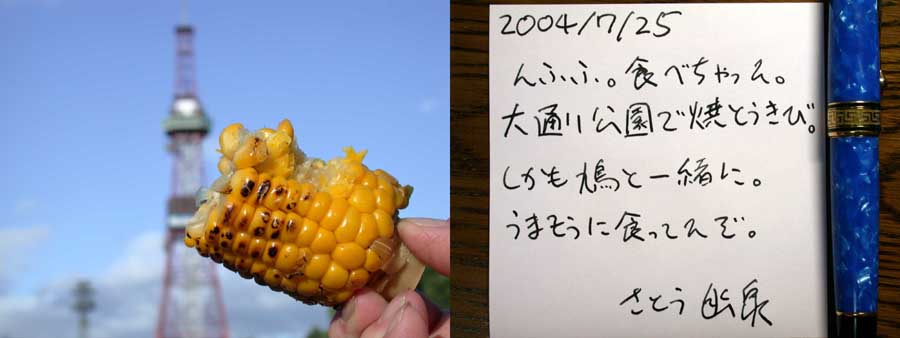 2004/7/25
んふふ。食べちゃえ。
大通り公園で焼とうきび。
しかも鳩と一緒に。
うまそうに食ってんぞ。
さとう